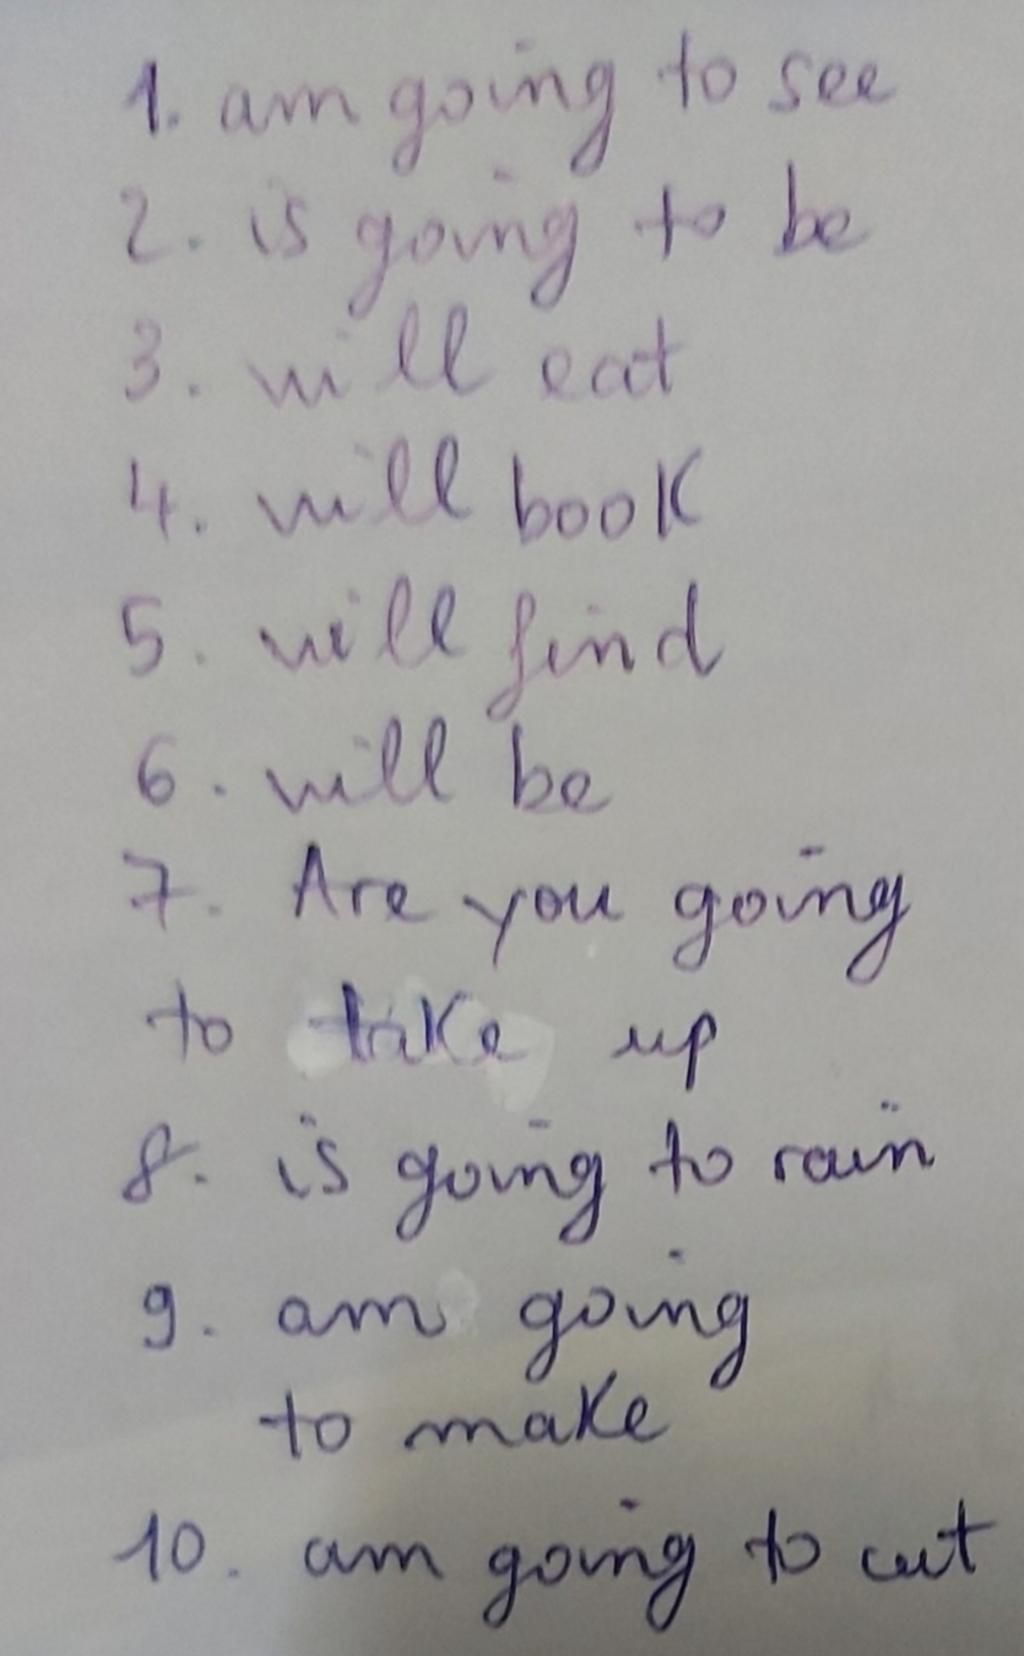 1. am going to see
2. is going to be
3. will eat
4. will book
5. will find
6. will be
7. Are you going
to take up
8. is going to rain
9. am going
to make
10. am going to cut